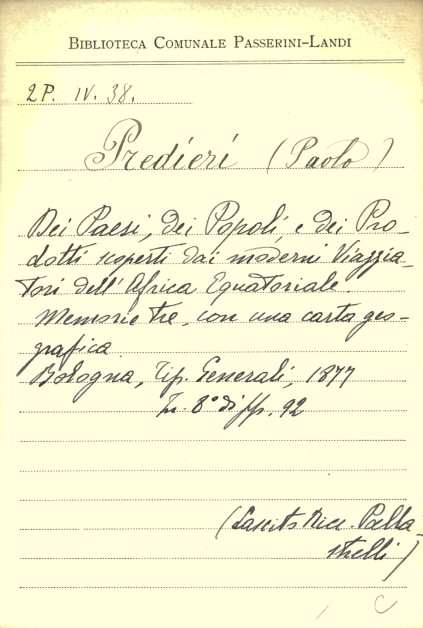 BIBLIOTECA COMUNALE PASSERINI-LANDI
2P. IV. 38.
Predieri (Paolo)
Dei Paesi, dei Popoli, e dei Pro-
dotti scoperti dai moderni Viaggia-
tori dell'Africa Equatoriale.
Memorie tre, con una carta geo-
grafica.
Bologna, Tip. Generali, 1877
In 8° di pp. 92
(Lascito Nicc. Palla-
strelli)
C